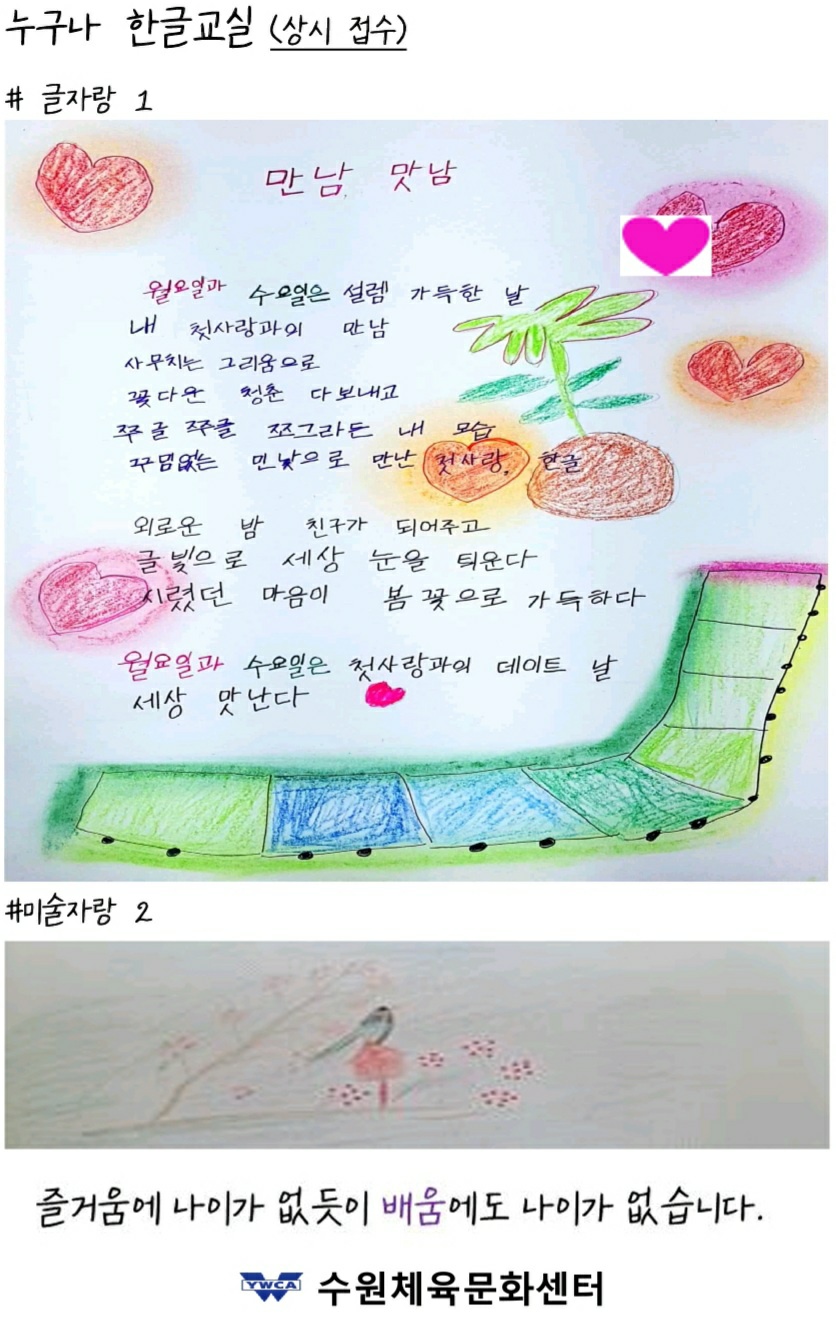 누구나 한글교실 (상시 접수)
# 글자랑 1
만남 맛남
월요일과 수요일은 설렘 가득한 날
내 첫사랑과의 만남
사무치는 그리움으로
꽃다운 청춘 다보내고
쭈글 쭈글 쪼그라든 내 모습
꾸밈없는 민낯으로 만난 첫사랑, 한글
외로운 밤 친구가 되어주고
글빛으로 세상 눈을 틔운다
시렸던 마음이 봄꽃으로 가득하다
월요일과 수요일은 첫사랑과의 데이트 날
세상 맛난다
#미술자랑 2
즐거움에 나이가 없듯이 배움에도 나이가 없습니다.
YWCA 수원체육문화센터